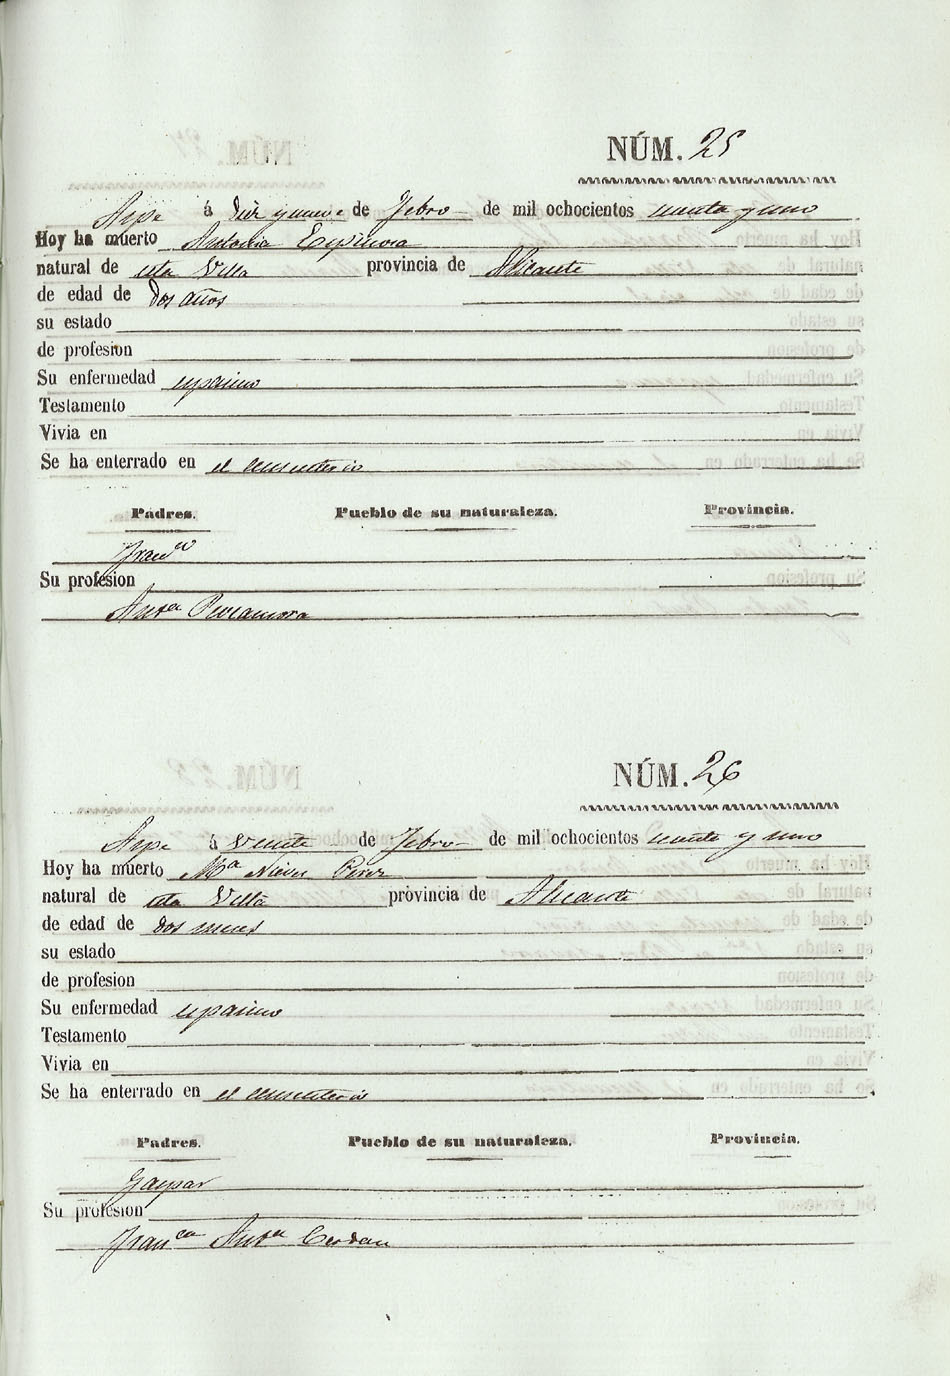 NÚM. 25
Aspe á diez y nueve de Febro de mil ochocientos cuarenta y uno
Hoy ha muerto Antonia Espinosa
natural de esta Villa provincia de Alicante
de edad de dos años
su estado
de profesion
Su enfermedad espasmo
Testamento
Vivia en
Se ha enterrado en el cementerio
Padres. Pueblo de su naturaleza. Provincia.
Franco
Su profesion
Anta
NÚM. 26
Aspe á veinte de Febro de mil ochocientos cuarenta y uno
Hoy ha muerto Ma Nieves Perez
natural de esta Villa provincia de Alicante
de edad de dos meses
su estado
de profesion
Su enfermedad espasmo
Testamento
Vivia en
Se ha enterrado en el cementerio
Padres. Pueblo de su naturaleza. Provincia.
Gaspar
Su profesion
Franca Anta Cerdan